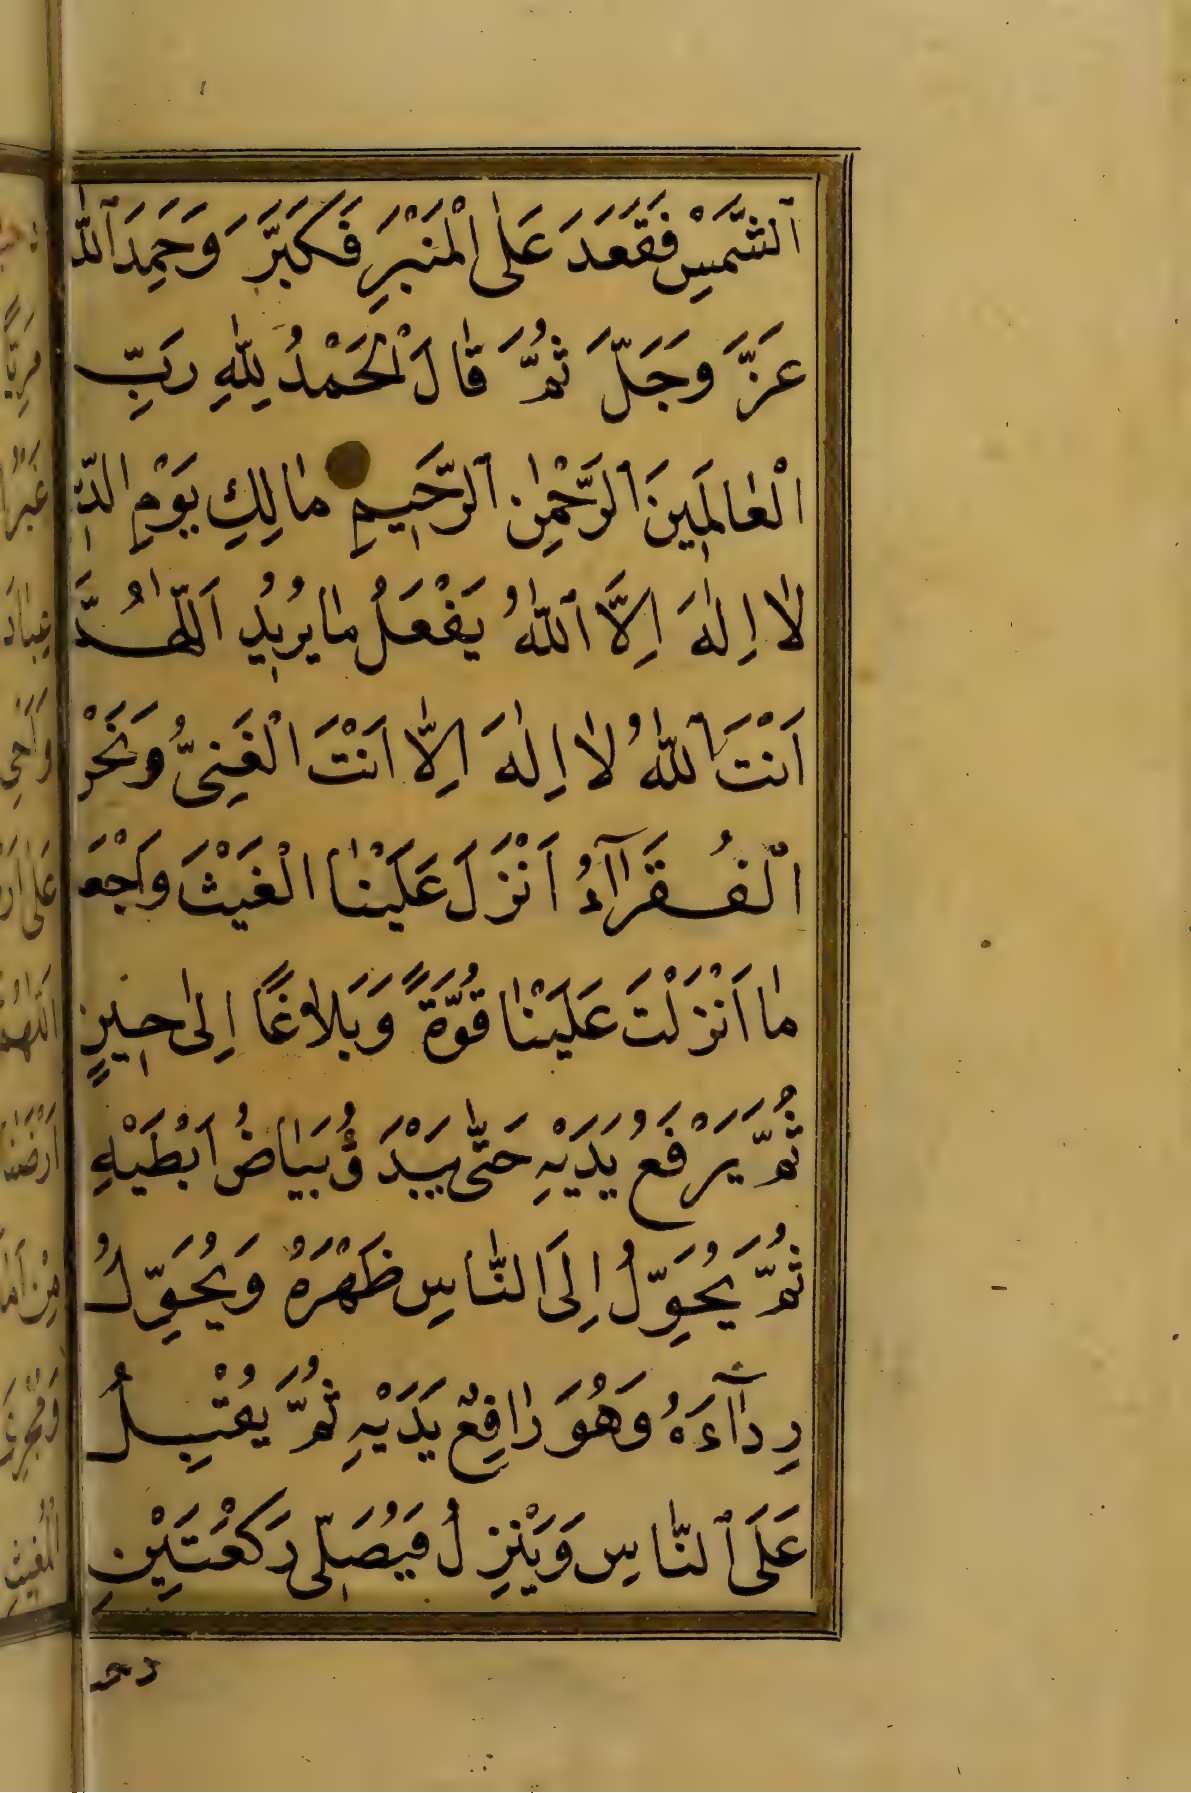 ٱلشَّمْسِ فَقَعَدَ عَلَى الْمِنْبَرِ فَكَبَّرَ وَحَمِدَ ٱللّٰه
عَزَّ وَجَلَّ ثُمَّ قَالَ الْحَمْدُ لِلّٰهِ رَبِّ
الْعَالَمِينَ ٱلرَّحْمٰنِ ٱلرَّحِيمِ مَالِكِ يَوْمِ الدِّين
لَا إِلٰهَ إِلَّا ٱللّٰهُ يَفْعَلُ مَا يُرِيدُ اَللّٰهُمَّ
اَنْتَ ٱللّٰهُ لَا اِلٰهَ اِلَّا اَنْتَ الْغَنِىُّ وَنَحْن
الْفُقَرَآءُ اَنْزِلْ عَلَيْنَا الْغَيْثَ وَاجْعَل
مَا اَنْزَلْتَ عَلَيْنَا قُوَّةً وَبَلَاغًا اِلٰى حِينٍ
ثُمَّ يَرْفَعُ يَدَيْهِ حَتّٰى يَبْدَؤُ بَيَاضُ اِبْطَيْهِ
ثُمَّ يُحَوِّلُ اِلَى النَّاسِ ظَهْرَهُ وَيُحَوِّلُ
رِدَآءَهُ وَهُوَ رَافِعٌ يَدَيْهِ ثُمَّ يُقْبِلُ
عَلَى ٱلنَّاسِ وَيَنْزِلُ فَيُصَلِّى رَكْعَتَيْنِ